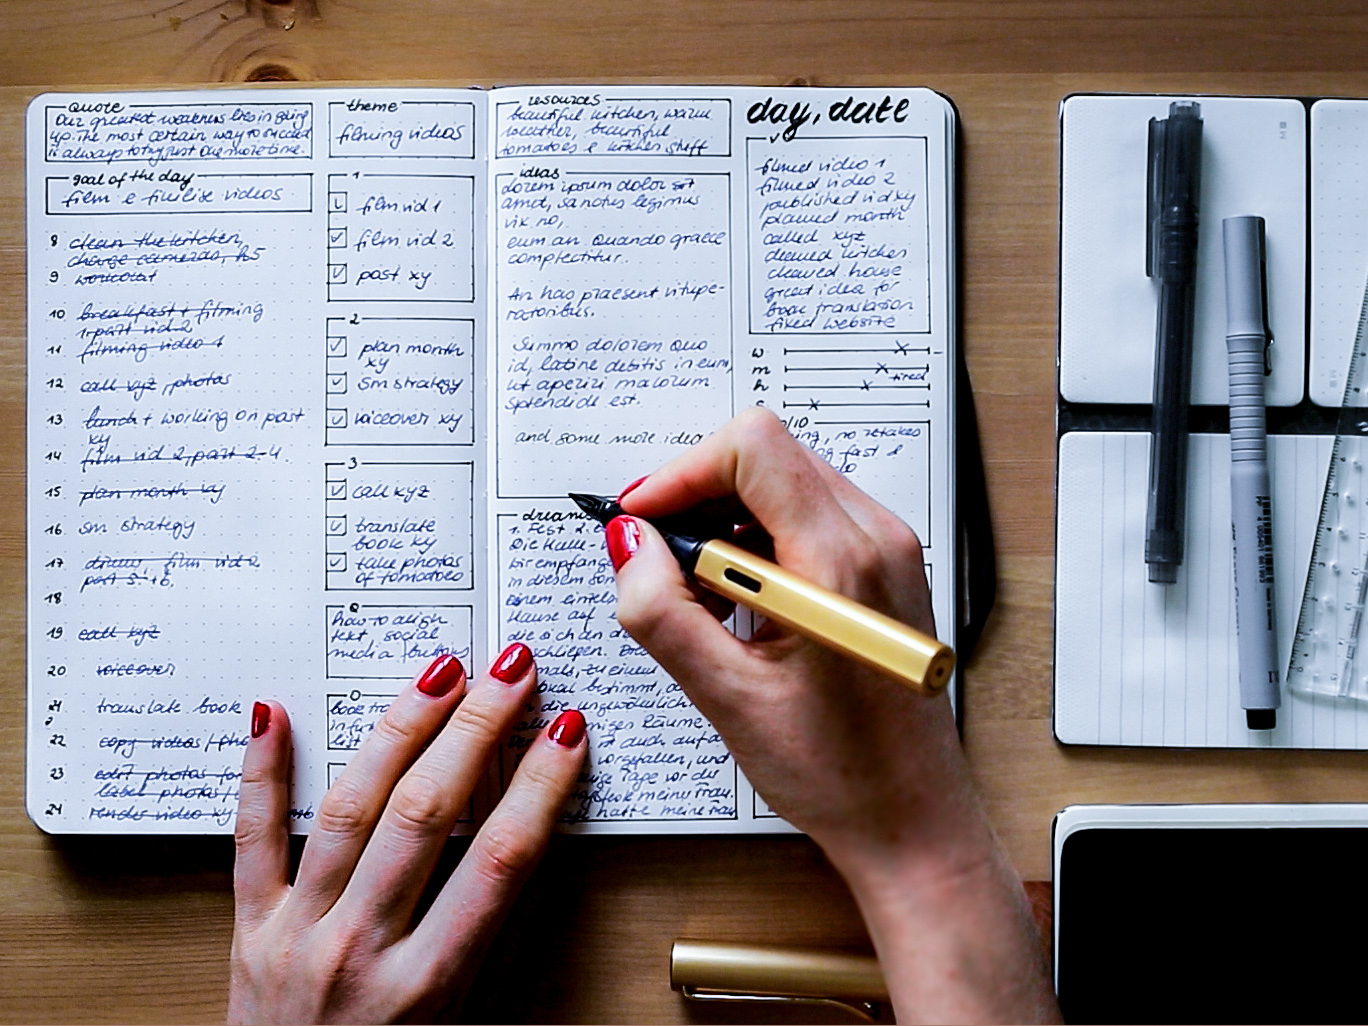 quote
Our greatest weakness lies in giving
up. The most certain way to succeed
is always to try just one more time.
goal of the day
film & finalise videos
8 clean the kitchen,
charge cameras, h5
9 workout
10 breakfast + filming
1. part vid 2
11 filming video 1
12 call xyz, photos
13 lunch + working on post
xy
14 film vid 2, part 2-4.
15 plan month xy
16 sm strategy
17 film vid 2
part 5-+6.
18
19 call xyz
20 voiceover
21 translate book
22 copy videos / pho
23 edit photos for
label photos /
24 render video xy
theme
filming videos
1
film vid 1
film vid 2
post xy
2
plan month
xy
sm strategy
voiceover xy
3
call xyz
translate
book xy
take photos
of tomatoes
Q
how to align
text, social
media buttons
O
book tra
in fu
list
resources
beautiful kitchen, warm
weather, beautiful
tomatoes & kitchen stuff
ideas
Lorem ipsum dolor sit
amet, sanctus legimus
vix no,
eum an quando graece
complectitur.
An has praesent vitupe-
ratoribus.
Summo dolorem quo
id, latine debitis in eum,
ut aperiri malorum
splendide est.
and some more idea
dreams
1. Fest 2.
Die Halle-
wir empfange
in diesem Som
einem einzels
Hause auf e
die sich an d
schliessen.
mals, zu einem
bestimmt, da
die ungewöhnlich
Räume.
auch auf d
vorgefallen, und
Tage vor der
meine Frau.
hatte meine Frau
day, date
filmed video 1
filmed video 2
published vid xy
planned month
called xyz
cleaned kitchen
cleaned house
great idea for
book translation
fixed website
w
m
h tired
s
no retakes
fast &